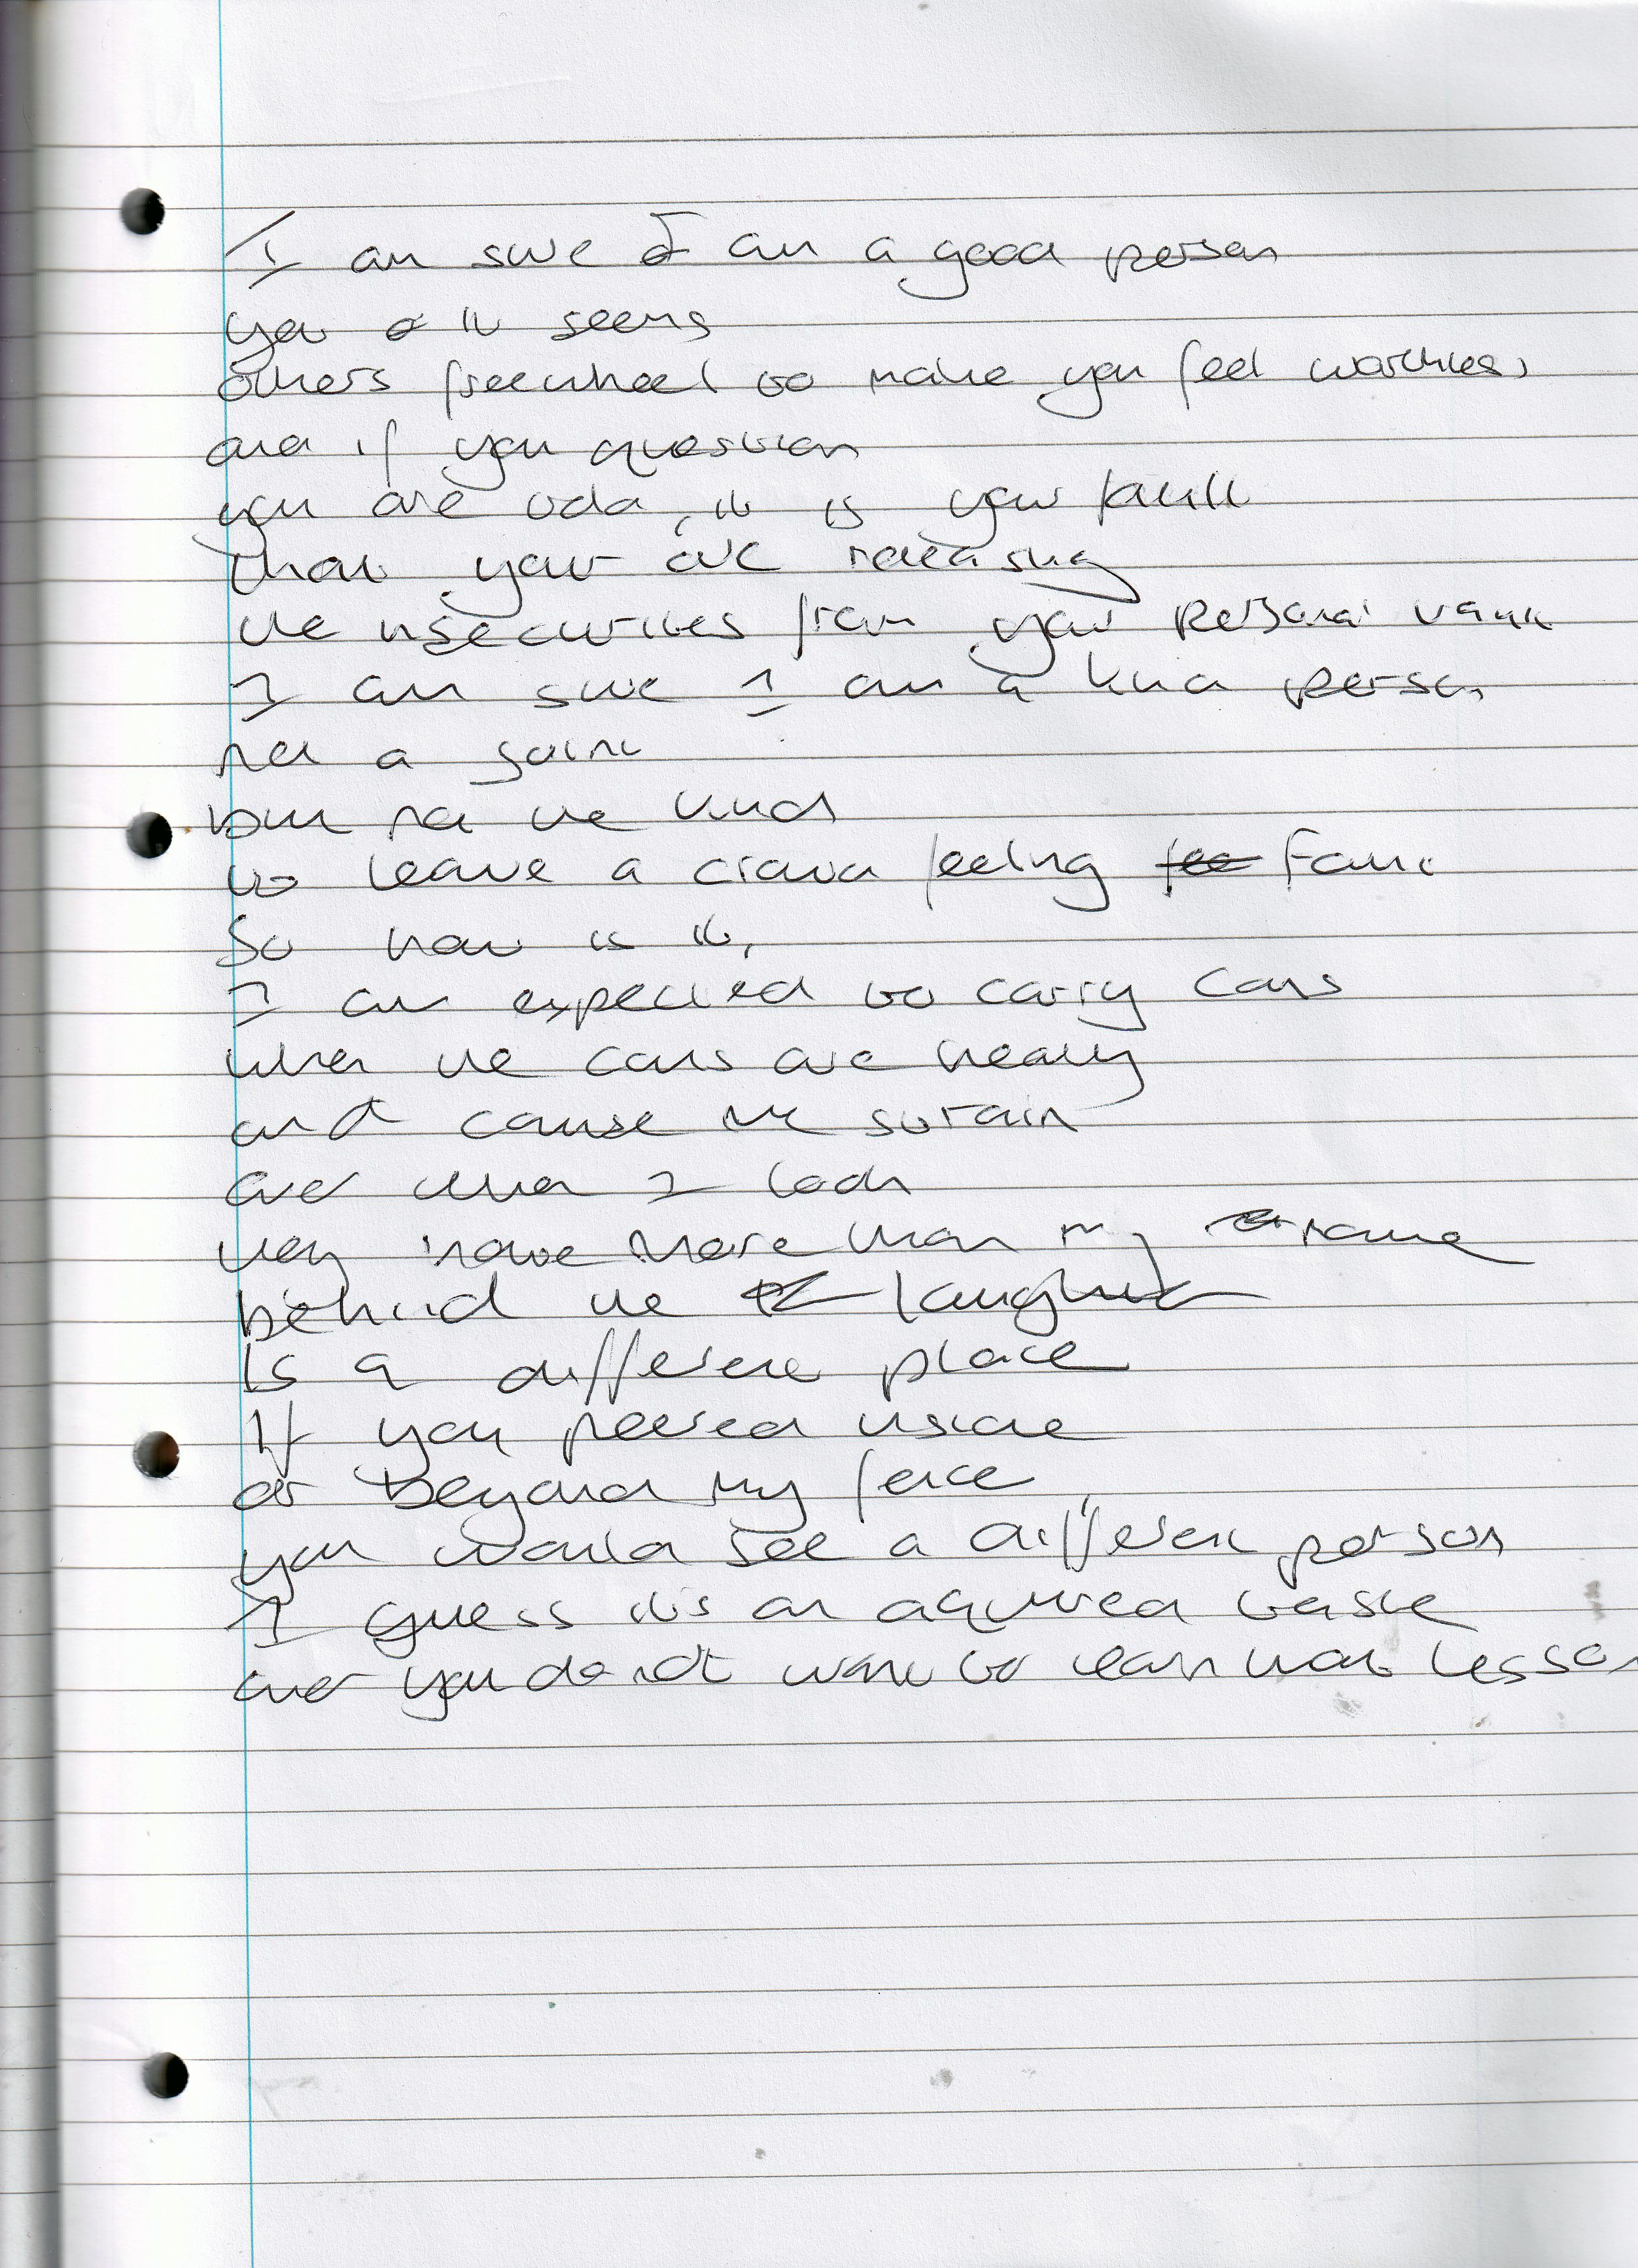 I am sure I am a good person
yet it seems
others freewheel to make you feel worthless,
and if you question
you are told, it is your fault
that your are releasing
the insecurities from your personal vault
I am sure I am a kind person
not a saint
but not the kind
to leave a crowd feeling faint
So how is it,
I am expected to carry cans
when the cans are heavy
and cause me strain
and when I look
they have more than my name
behind the laughter
Is a different place
If you peered inside
or beyond my fence
you would see a different person
I guess it's an aquired taste
and you do not want to learn that lesson